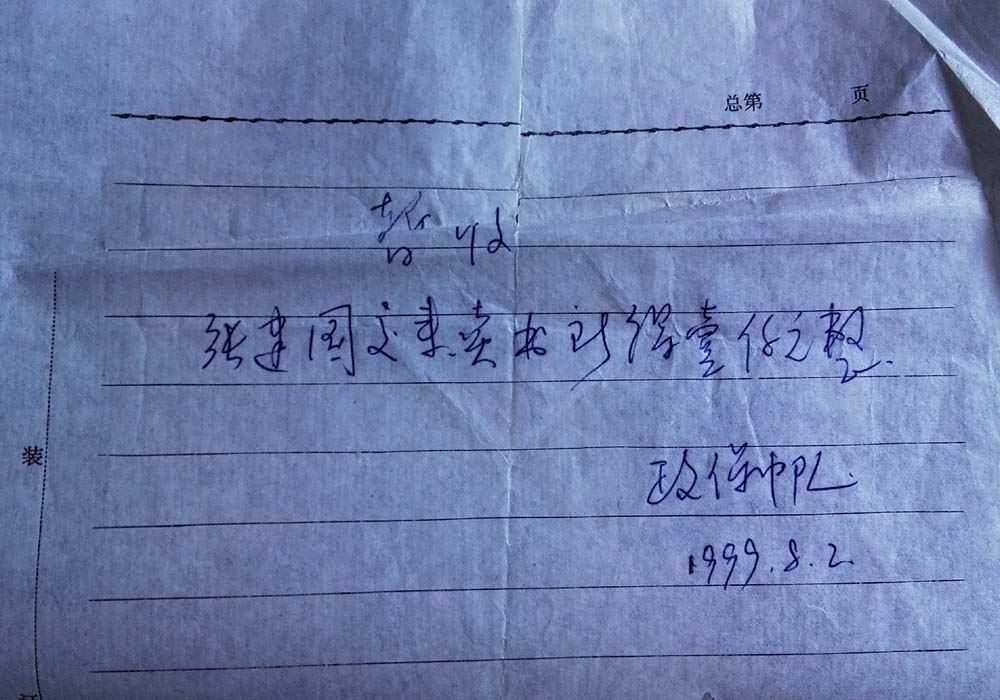 总第 页
暂收
张建国交来卖书所得壹仟元整.
政保中队
1999.8.2.
装
订